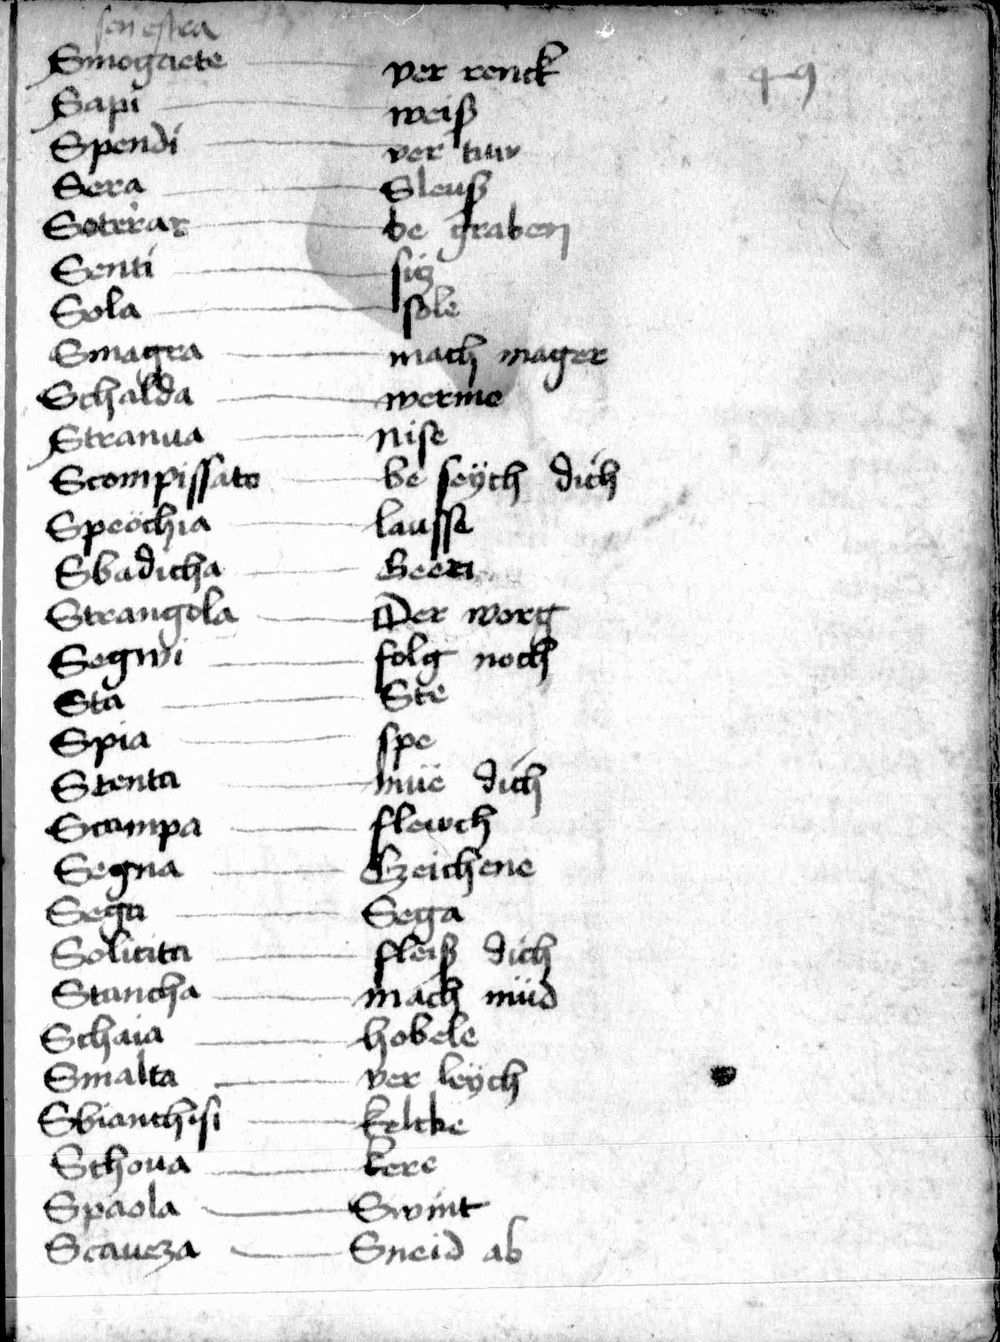 fenestra
Smogaete ver renck
49
Sapi weiß
Spendi ver tuw
Sera Sleuß
Soterrar be graben
Senti siz
Sola sole
Smagra mach mager
Schalda werme
Stranua nise
Scompissate be seÿch dich
Speochia lausse
Sbadicha Geen
Strangola Der worg
Segwi folg noch
Sta Ste
Spia spe
Stenta müe dich
Scampa flewch
Segna Czeichene
Sega Sega
Solicita fleiß dich
Stancha mach müd
Schaia hobele
Smalta ver leÿch
Sbianchisi kelcke
Schoua kere
Spaola Swint
Scaueza Sneid ab